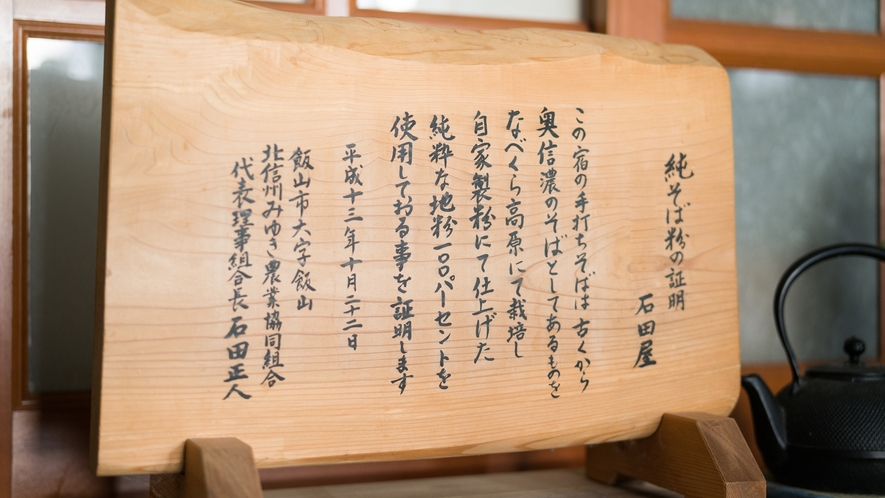 純そば粉の証明
石田屋
この宿の手打ちそばは古くから
奥信濃のそばとしてあるものを
なべくら高原にて栽培し
自家製粉にて仕上げた
純粋な地粉一〇〇パーセントを
使用しておる事を証明します
平成十三年十月二十二日
飯山市大字飯山
北信州みゆき農業協同組合
代表理事組合長石田正人